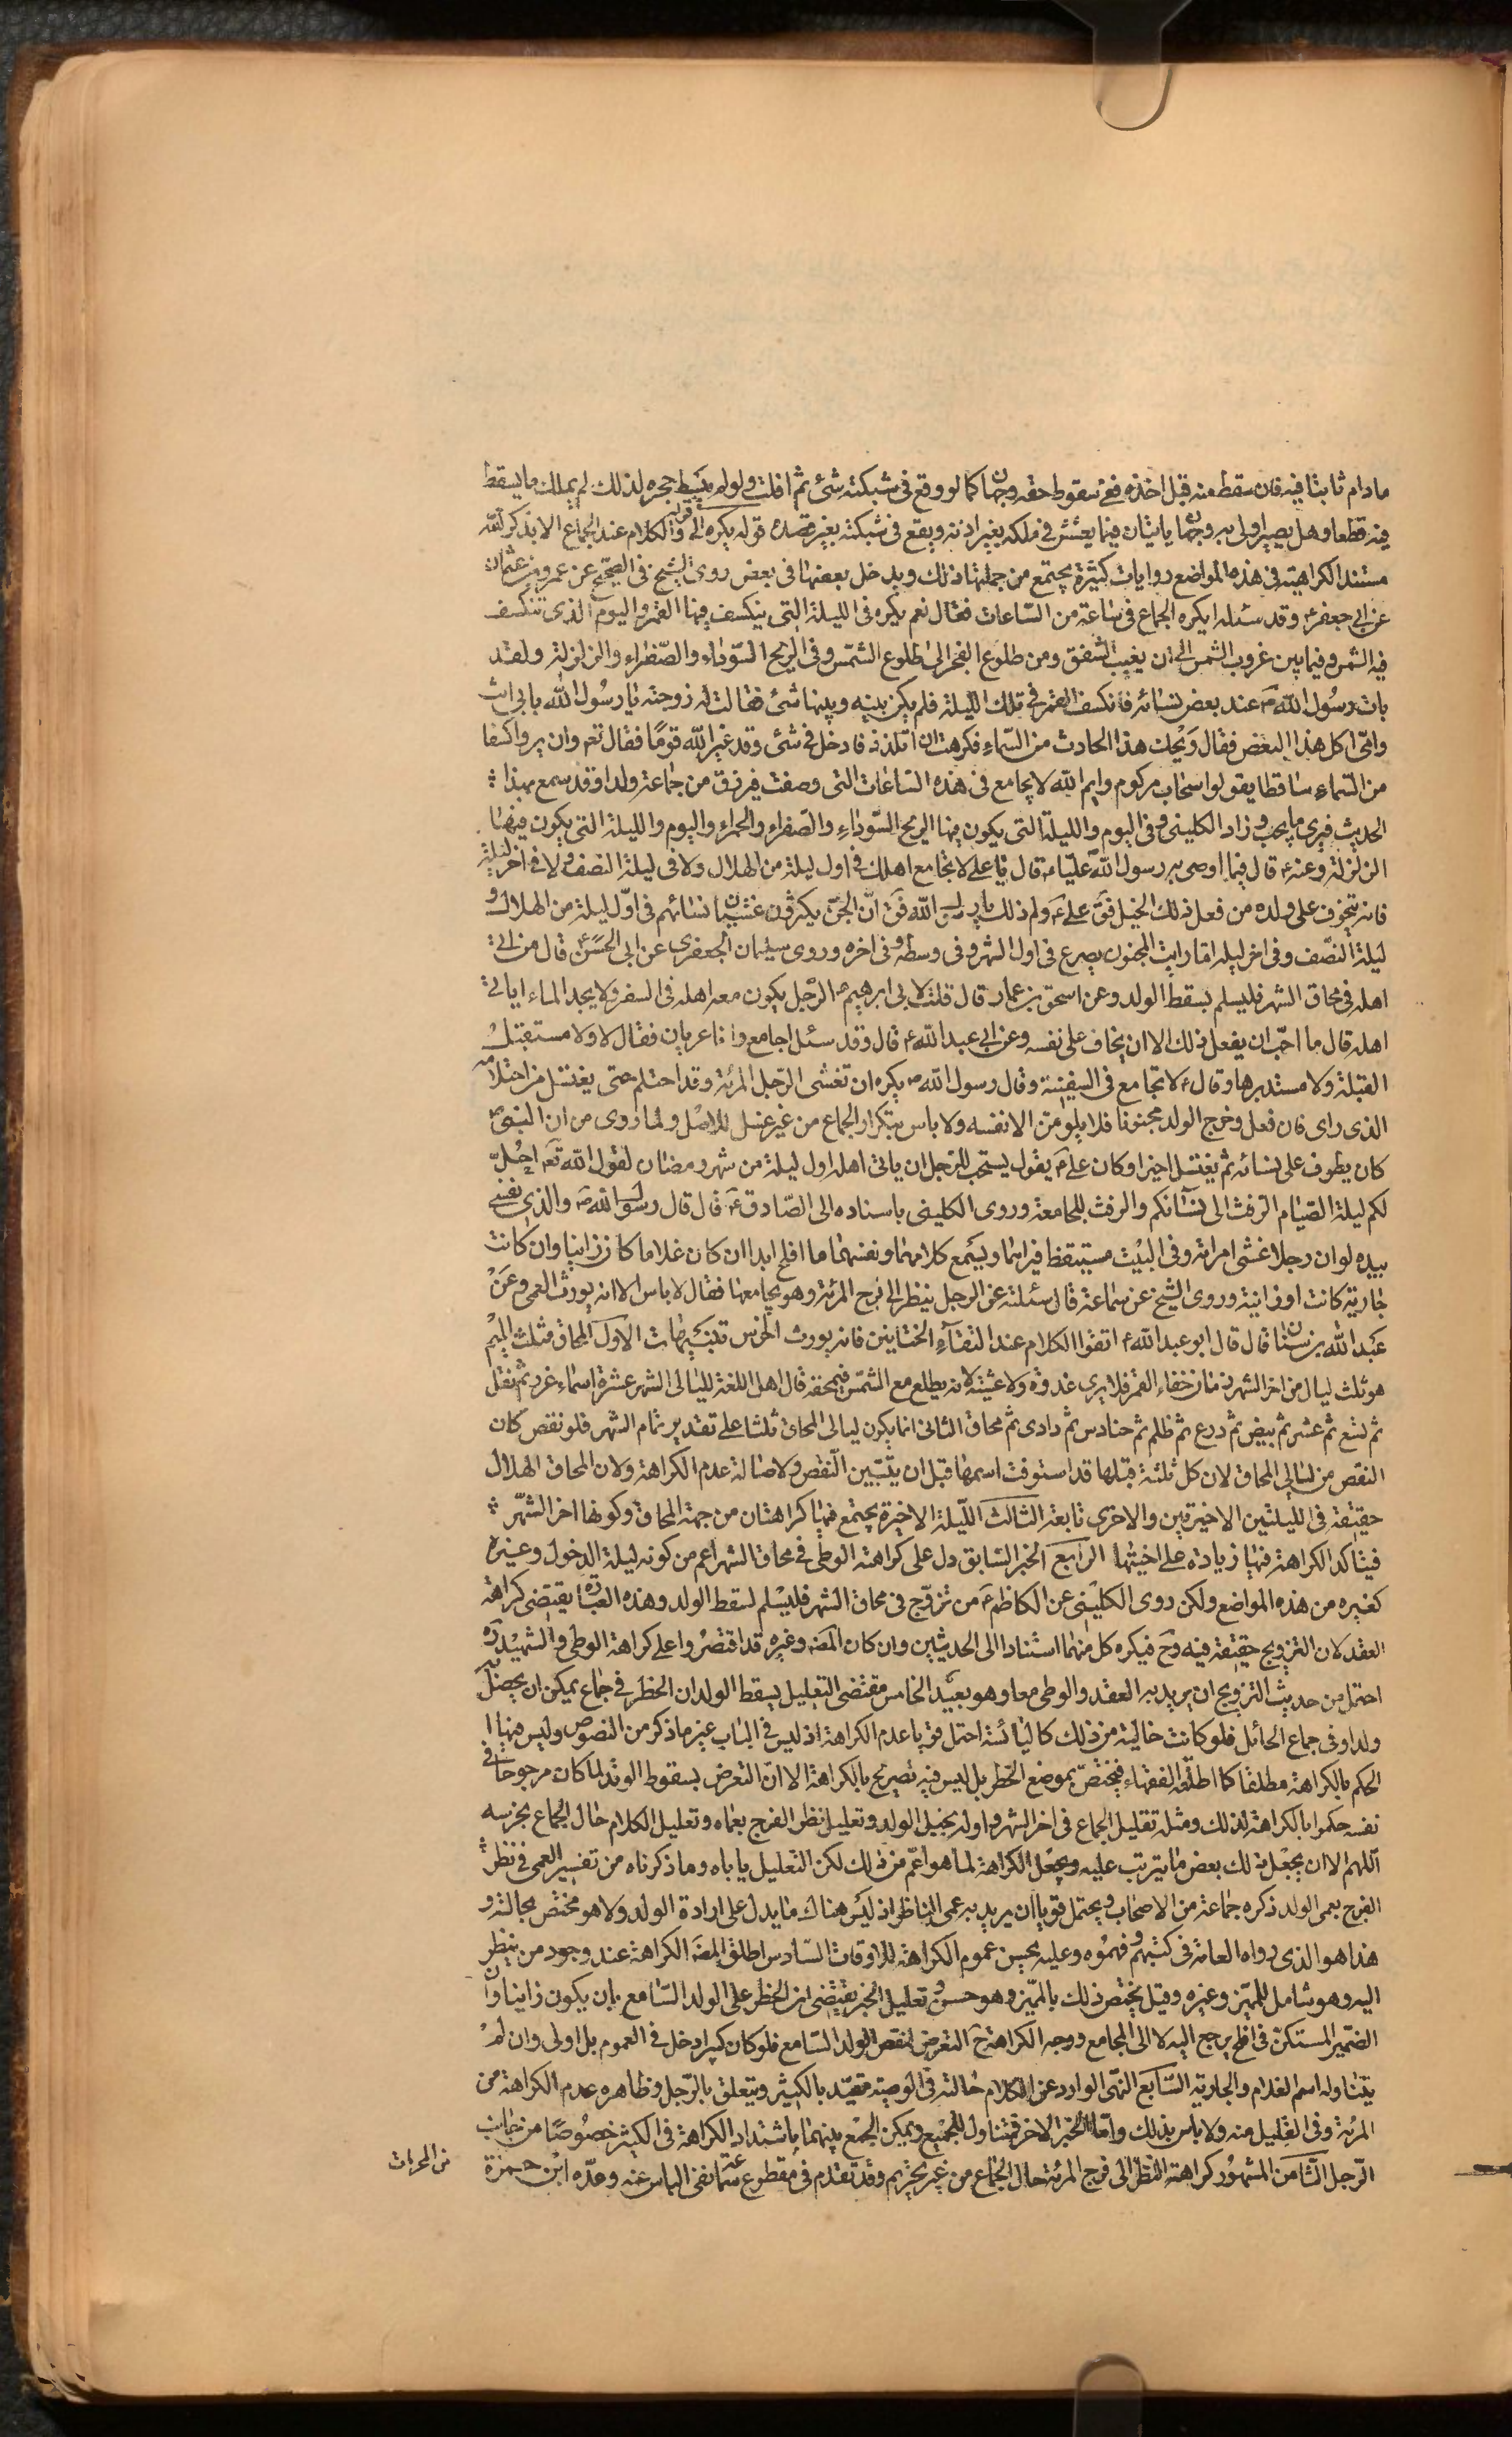 مادام ثابتا فيه فان سقط منه قبل اخذه ففى سقوط حقه وجهان كما لو وقع فى شبكته شئ ثم افلت ولو لم يبسط حجره لذلك لم يملك ما يسقط
فيه قطعا وهل يصير اولى به وجهان ياتيان فيما يعشش فى ملكه بغير اذنه ويقع فى شبكته بغير قصده قوله يكره الى قوله والكلام عند الجماع الا بذكر الله
مستند الكراهية فى هذه المواضع روايات كثيرة يجتمع من جملتها ذلك ويدخل بعضها فى بعض روى الشيخ فى الصحيح عن عمرو بن عثمان
عن ابى جعفر ع وقد سئله ايكره الجماع فى ساعة من الساعات فقال نعم يكره فى الليلة التى ينكسف فيها القمر واليوم الذى تنكسف
فيه الشمس وفيما بين غروب الشمس الى ان يغيب الشفق ومن طلوع الفجر الى طلوع الشمس وفى الريح السوداء والصفراء والزلزلة ولقد
بات رسول الله ص عند بعض نسائه فانكسف القمر فى تلك الليلة فلم يكن بينه وبينها شئ فقالت له زوجته يا رسول الله بابى انت
وامى اكل هذا البغض فقال ويحك هذا الحادث من السماء فكرهت ان اتلذذ فادخل فى شئ وقد غير الله قوما فقال تع وان يروا كسفا
من السماء ساقطا يقولوا سحاب مركوم وايم الله لا يجامع فى هذه الساعات التى وصفت فيرزق من جماعة ولدا وقد سمع بهذا
الحديث فيرى ما يحب وزاد الكلينى وفى اليوم والليلة التى يكون فيها الريح السوداء والصفراء والحمراء واليوم والليلة التى يكون فيها
الزلزلة وعنه ع قال فيما اوصى به رسول الله عليا ع قال يا على لا تجامع اهلك فى اول ليلة من الهلال ولا فى ليلة النصف ولا فى اخر ليلة
فانه يتخوف على ولده من فعل ذلك الخبل فق على ع ولم ذلك يا رسول الله فق ان الجن يكثرون غشيان نسائهم فى اول ليلة من الهلال و
ليلة النصف وفى اخر ليلة اما رايت المجنون يصرع فى اول الشهر وفى وسطه وفى اخره وروى سليمان الجعفرى عن ابى الحسن ع قال من اتى
اهله فى محاق الشهر فليسلم لسقط الولد وعن اسحق بن عمار قال قلت لابى ابرهيم ع الرجل يكون معه اهله فى السفر ولا يجد الماء اياتى
اهله قال ما احب ان يفعل ذلك الا ان يخاف على نفسه وعن ابى عبد الله ع قال وقد سئل اجامع وانا عريان فقال لا ولا مستقبل
القبلة ولا مستدبرها وقال ع لا تجامع فى السفينة وقال رسول الله ص يكره ان تغشى الرجل المرئة وقد احتلم حتى يغتسل من احتلامه
الذى راى فان فعل وخرج الولد مجنونا فلا يلومن الا نفسه ولا باس بتكرار الجماع من غير غسل للاصل ولما روى من ان النبى ص
كان يطوف على نسائه ثم يغتسل اخيرا وكان على ع يقول يستحب للرجل ان ياتى اهله اول ليلة من شهر رمضان لقول الله تع احل
لكم ليلة الصيام الرفث الى نسآئكم والرفث المجامعة وروى الكلينى باسناده الى الصادق ع قال قال رسول الله ص والذى نفسى
بيده لو ان رجلا غشى امراته وفى البيت مستيقظ فيراهما ويسمع كلامهما ونفسهما ما افلح ابدا ان كان غلاما كان زانيا وان كانت
جارية كانت زانية وروى الشيخ عن سماعة قال سئلته عن الرجل ينظر الى فرج المرئة وهو يجامعها فقال لا باس الا انه يورث العمى وعن
عبد الله بن سنان قال قال ابو عبد الله ع اتقوا الكلام عند التقآء الختانين فانه يورث الخرس تنبيهات الاول المحاق مثلث الميم
هو ثلث ليال من اخر الشهر زمان خفاء القمر فلا يرى غدوة ولا عشية لانه يطلع مع الشمس فتمحقه قال اهل اللغة لليالى الشهر عشرة اسماء غرر ثم نفل
ثم تسع ثم عشر ثم بيض ثم درع ثم ظلم ثم حنادس ثم دادى ثم محاق الثانى انما يكون ليالى المحاق ثلثا على تقدير تمام الشهر فلو نقص كان
النقص من ليالى المحاق لان كل ثلثة قبلها قد استوفت اسمها قبل ان يتبين النقص ولاصالة عدم الكراهة ولان المحاق الهلال
حقيقة فى الليلتين الاخيرتين والاخرى تابعة الثالث الليلة الاخيرة يجتمع فيها كراهتان من جهة المحاق وكونها اخر الشهر
فيتاكد الكراهة فيها زيادة على اختيها الرابع الخبر السابق دل على كراهة الوطى فى محاق الشهر اعم من كونه ليلة الدخول وغيره
كغيره من هذه المواضع ولكن روى الكلينى عن الكاظم ع من تزوج فى محاق الشهر فليسلم لسقط الولد وهذه العبارة يقتضى كراهة
العقد لان التزويج حقيقة فيه وح فيكره كل منهما استنادا الى الحديثين وان كان المص وغيره قد اقتصروا على كراهة الوطى والشهيد ره
احتمل من حديث التزويج ان يريد به العقد والوطى معا وهو بعيد الخامس مقتضى التعليل بسقط الولد ان الحظر فى جماع يمكن ان يحصل
ولدا وفى جماع الحائل فلو كانت خالية من ذلك كاليائسة احتمل قويا عدم الكراهة اذ ليس فى الباب غير ما ذكر من النصوص وليس فيها
الحكم بالكراهة مطلقا كما اطلقه الفقهاء فيختص بموضع الخطر بل ليس فيه تصريح بالكراهة الا ان التعرض بسقوط الولد لما كان مرجوحا فى
نفسه حكموا بالكراهة لذلك ومثله تعليل الجماع فى اخر الشهر واوله بخبل الولد وتعليل نظر الفرج بعماه وتعليل الكلام حال الجماع بخرسه
اللهم الا ان يجعل ذلك بعض ما يترتب عليه ويجعل الكراهة لما هو اعم من ذلك لكن التعليل ياباه وما ذكرناه من تفسير العمى فى نظر
الفرج بعمى الولد ذكره جماعة من الاصحاب ويحتمل قويا ان يريد به عمى الناظر اذ ليس هناك ما يدل على ارادة الولد ولا هو مختص بحالته و
هذا هو الذى رواه العامة فى كتبهم وفهموه وعليه يحسن عموم الكراهة للاوقات السادس اطلق المص الكراهة عند وجود من ينظر
اليه وهو شامل للمميز وغيره وقيل يختص ذلك بالمميز وهو حسن وتعليل الخبر يقتضى ان الخطر على الولد السامع بان يكون زانيا وان
الضمير المستكن فى افلح يرجع اليه لا الى المجامع ووجه الكراهة ح التعرض لنقص الولد السامع فلو كان كبيرا دخل فى العموم بل اولى وان لم
يتناوله اسم الغلام والجارية السابع النهى الوارد عن الكلام حالته فى الوصية مقيد بالكثير ويتعلق بالرجل وظاهره عدم الكراهة من
المرئة وفى القليل منه ولا باس بذلك واما الخبر الاخر فمتناول للجميع ويمكن الجمع بينهما باشتداد الكراهة فى الكثير خصوصا من جانب
الرجل الثامن المشهور كراهة النظر الى فرج المرئة حال الجماع من غير تحريم وقد تقدم فى مقطوع سماعة نفى الباس عنه وعده ابن حمزة
من المحرمات